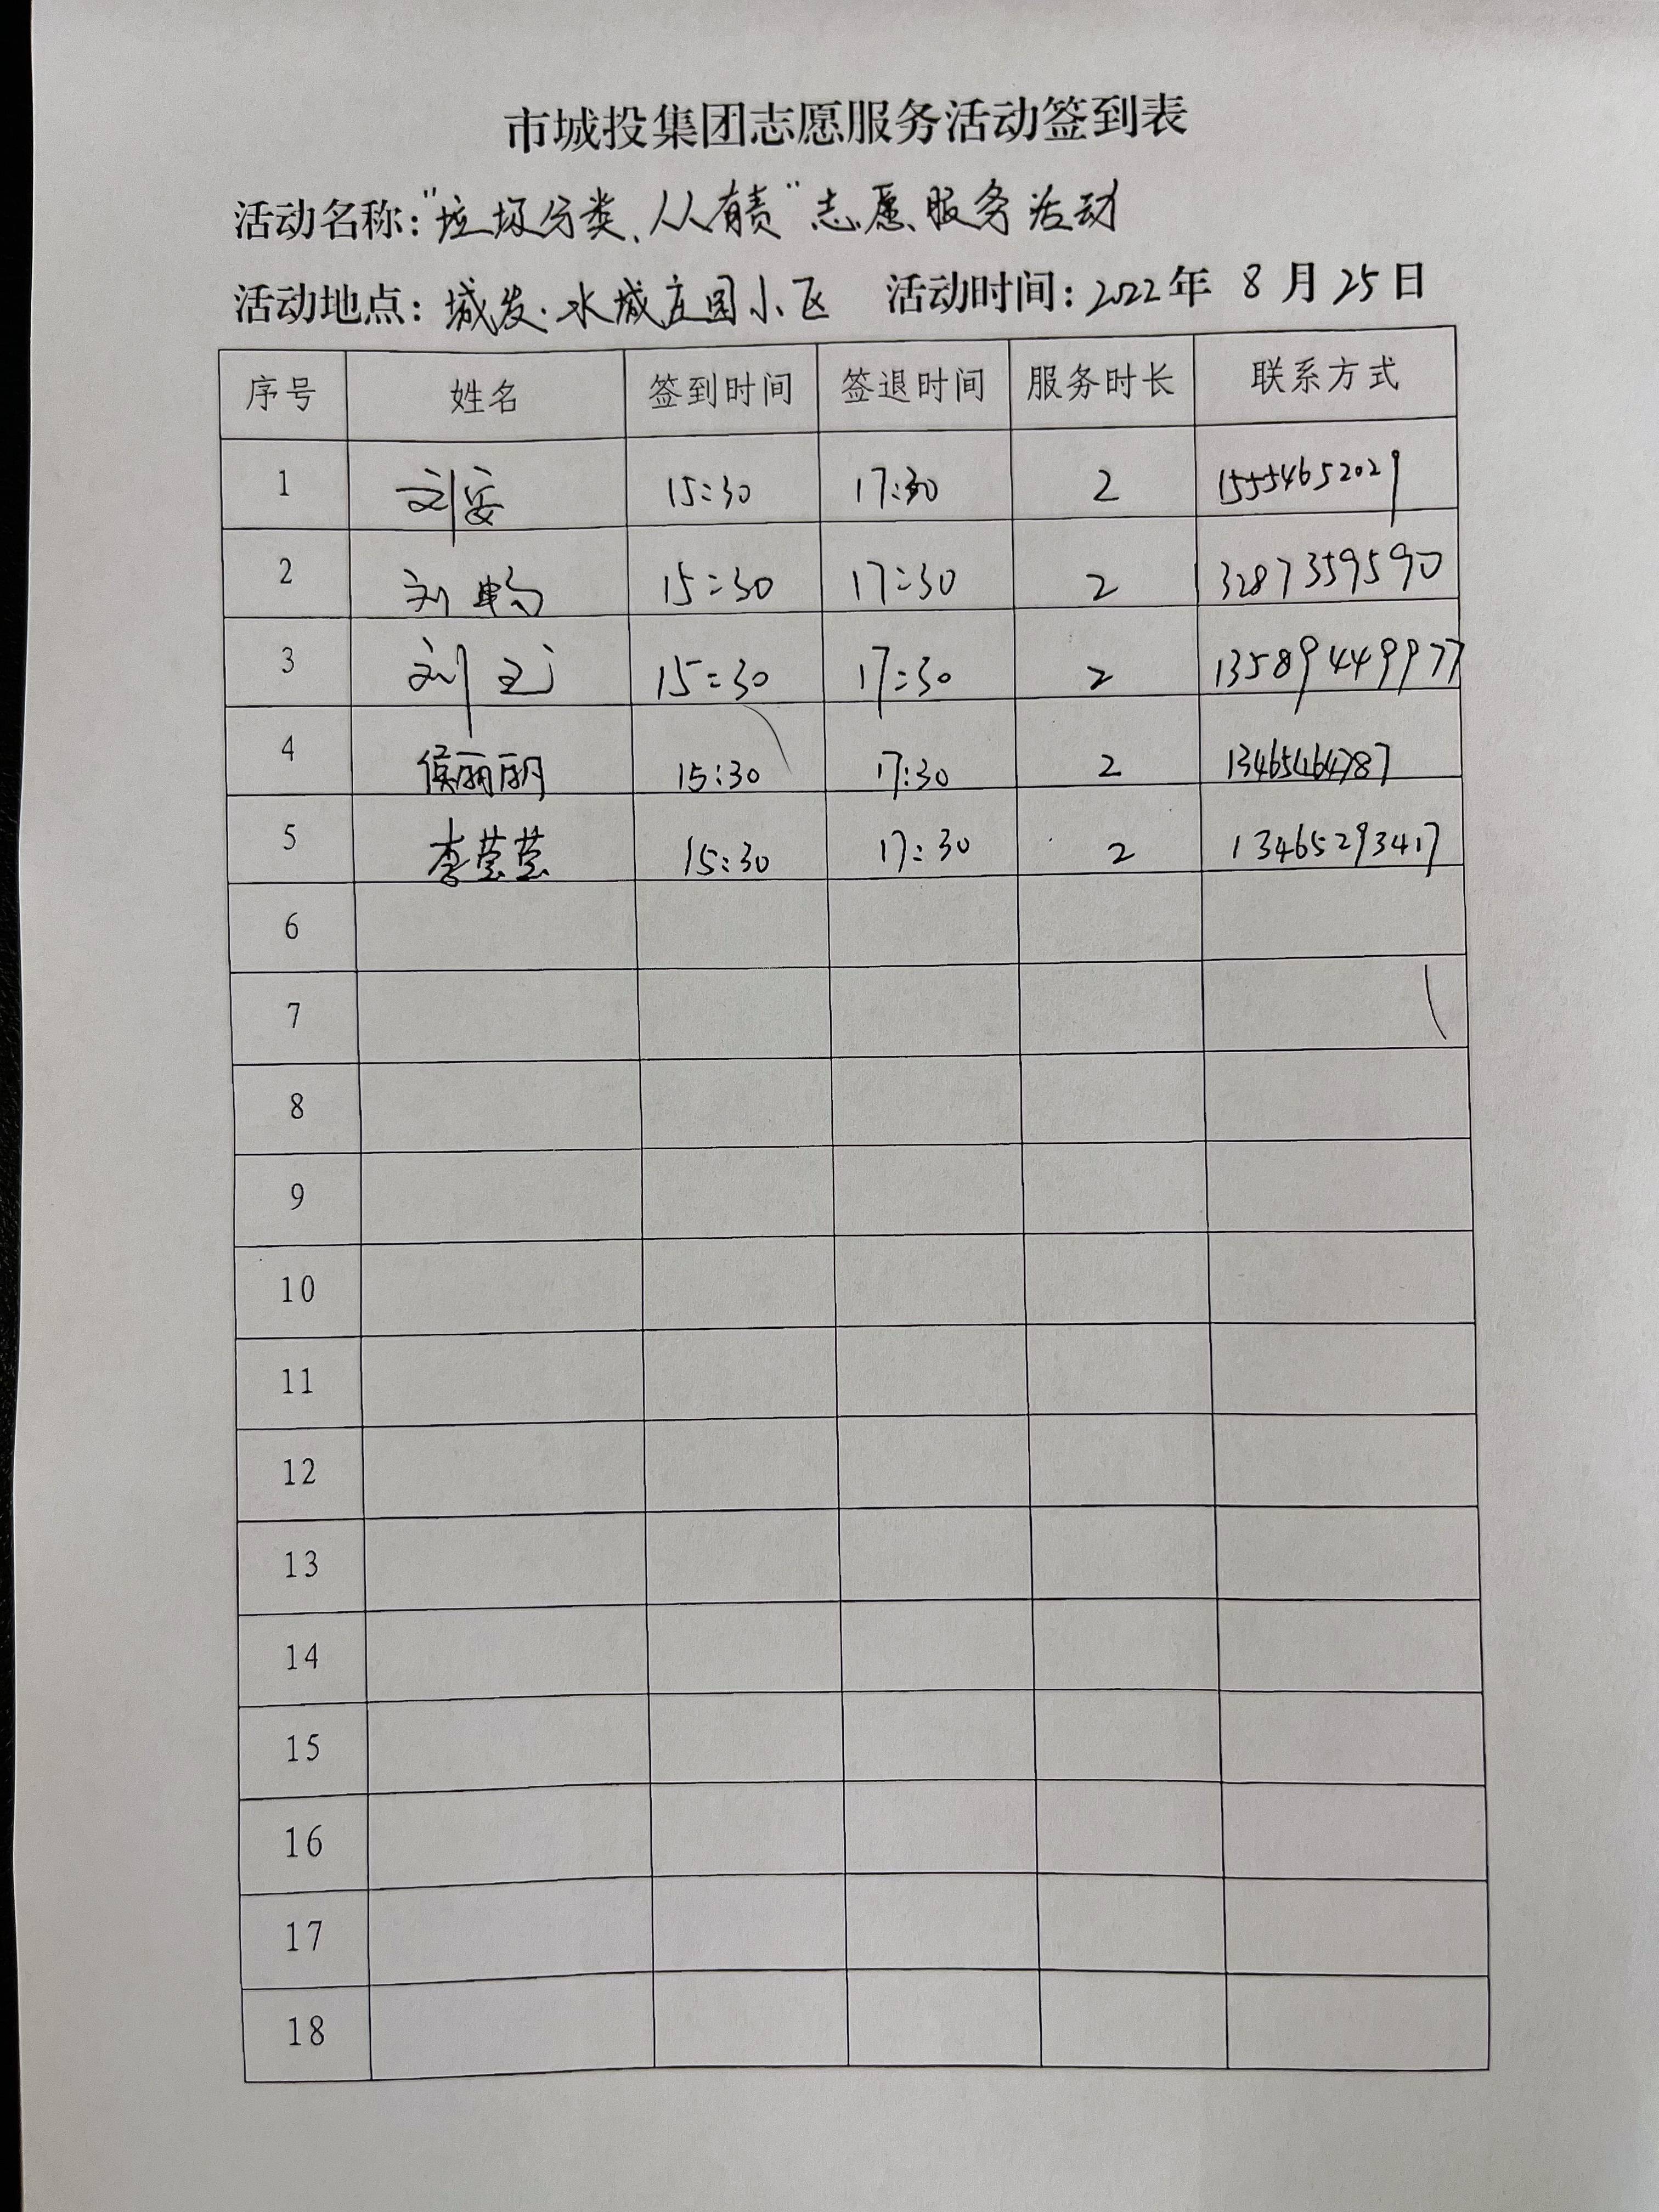 市城投集团志愿服务活动签到表
活动名称：“垃圾分类、人人有责”志愿服务活动
活动地点：城发·水城庄园小区 活动时间：2022年 8月25日
序号 姓名 签到时间 签退时间 服务时长 联系方式
1 刘安 15:30 17:30 2 15554652029
2 刘畅 15:30 17:30 2 13287359590
3 刘 15:30 17:30 2 13589449977
4 侯丽丽 15:30 17:30 2 13465464787
5 李莹莹 15:30 17:30 2 13465293417
6
7
8
9
10
11
12
13
14
15
16
17
18